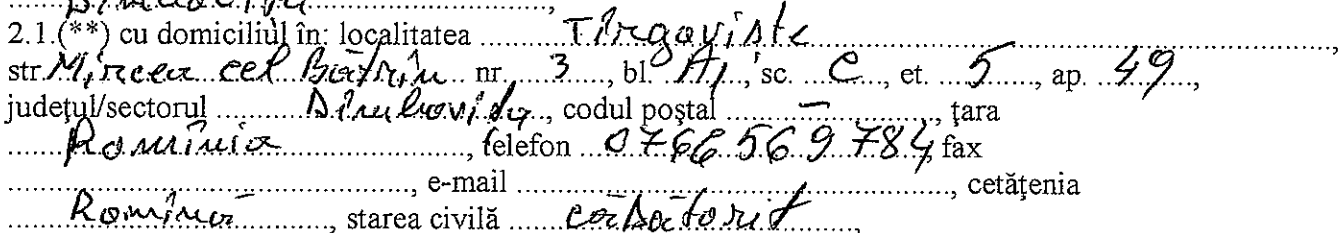 2.1.(**) cu domiciliul în: localitatea ........ Tîrgoviște ........,
str. Mircea cel Bătrîn nr. ....3...., bl. A1, sc. ...C..., et. ...5..., ap. ..49..,
județul/sectorul ........ Dîmbovița, codul poștal ........–........, țara
........ Romînia ........, telefon ... 0766 569 784, fax
................, e-mail ................, cetățenia
........ Romînă ........, starea civilă ...... căsătorit ........,